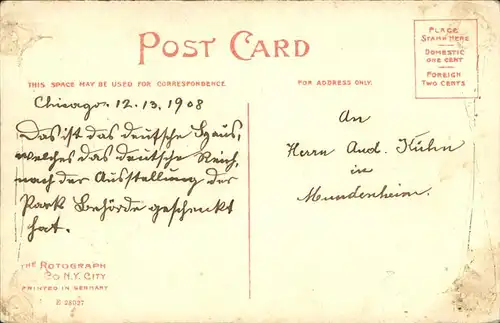 POST CARD
PLACE
STAMP HERE
DOMESTIC
ONE CENT
FOREIGN
TWO CENTS
THIS SPACE MAY BE USED FOR CORRESPONDENCE.
FOR ADDRESS ONLY.
Chicago. 12. 13. 1908
Das ist das deutsche Haus,
welches das deutsche Reich,
nach der Ausstellung der
Park Behörde geschenkt
hat.
An
Herrn Aud. Kühn
in
Mundenheim.
THE ROTOGRAPH
Co N.Y. CITY
PRINTED IN GERMANY
E 28027